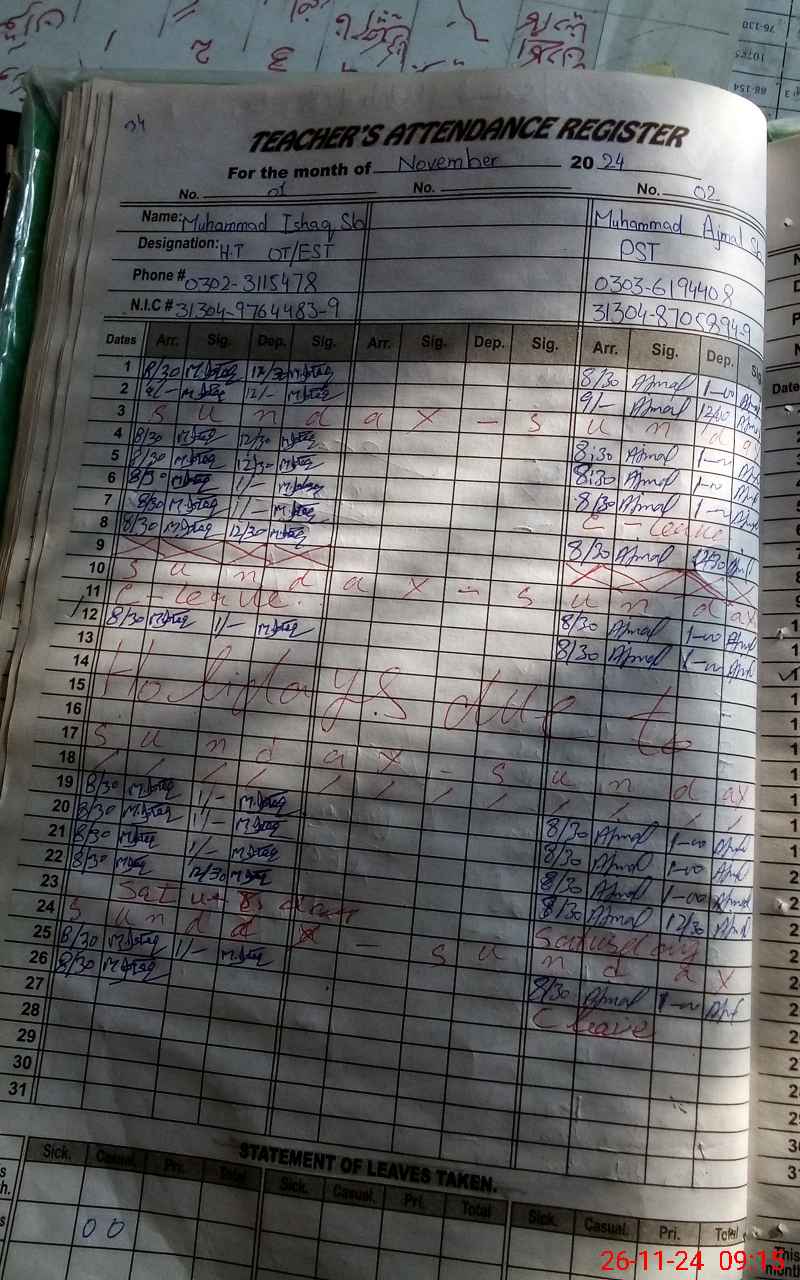 34
TEACHER'S ATTENDANCE REGISTER
For the month of November 2024
No. 01 No. No. 02
Name: Muhammad Ishaq Sb Muhammad Ajmal Sb
Designation: H.T OT/EST PST
Phone # 0302-3115478 0303-6194408
N.I.C # 31304-9764483-9 31304-8705894-9
Dates Arr. Sig. Dep. Sig. Arr. Sig. Dep. Sig. Arr. Sig. Dep. Sig
1 8/30 M.Ishaq 12/30 M.Ishaq 8/30 Ajmal 1-00 Ajmal
2 9/- M.Ishaq 12/- M.Ishaq 9/- Ajmal 12/00 Ajmal
3 S u n d a y - S u n d a y
4 8/30 M.Ishaq 12/30 M.Ishaq 8:30 Ajmal 1-00 Ajmal
5 8/30 M.Ishaq 12/30 M.Ishaq 8:30 Ajmal 1-00 Ajmal
6 8/30 M.Ishaq 1/- M.Ishaq 8/30 Ajmal 1-00 Ajmal
7 8/30 M.Ishaq 1/- M.Ishaq C-leave
8 8/30 M.Ishaq 12/30 M.Ishaq 8/30 Ajmal 12/30 Ajmal
9
10 S u n d a y - S u n d a y
11 C-leave. 8/30 Ajmal 1-00 Ajmal
12 8/30 M.Ishaq 1/- M.Ishaq 8/30 Ajmal 1-00 Ajmal
13
14
15 Holidays due to
16
17 S u n d a y - S u n d a y
18
19 8/30 M.Ishaq 1/- M.Ishaq 8/30 Ajmal 1-00 Ajmal
20 8/30 M.Ishaq 1/- M.Ishaq 8/30 Ajmal 1-00 Ajmal
21 8/30 M.Ishaq 1/- M.Ishaq 8/30 Ajmal 1-00 Ajmal
22 8/30 M.Ishaq 12/30 M.Ishaq 8/30 Ajmal 12/30 Ajmal
23
24 S u n d a y - S u n d a y
25 8/30 M.Ishaq 1/- M.Ishaq 8/30 Ajmal 1-00 Ajmal
26 8/30 M.Ishaq C leave
27
28
29
30
31
STATEMENT OF LEAVES TAKEN.
Sick. Casual. Pri. Total Sick. Casual. Pri. Total Sick. Casual. Pri. Total
00
26-11-24 09:15